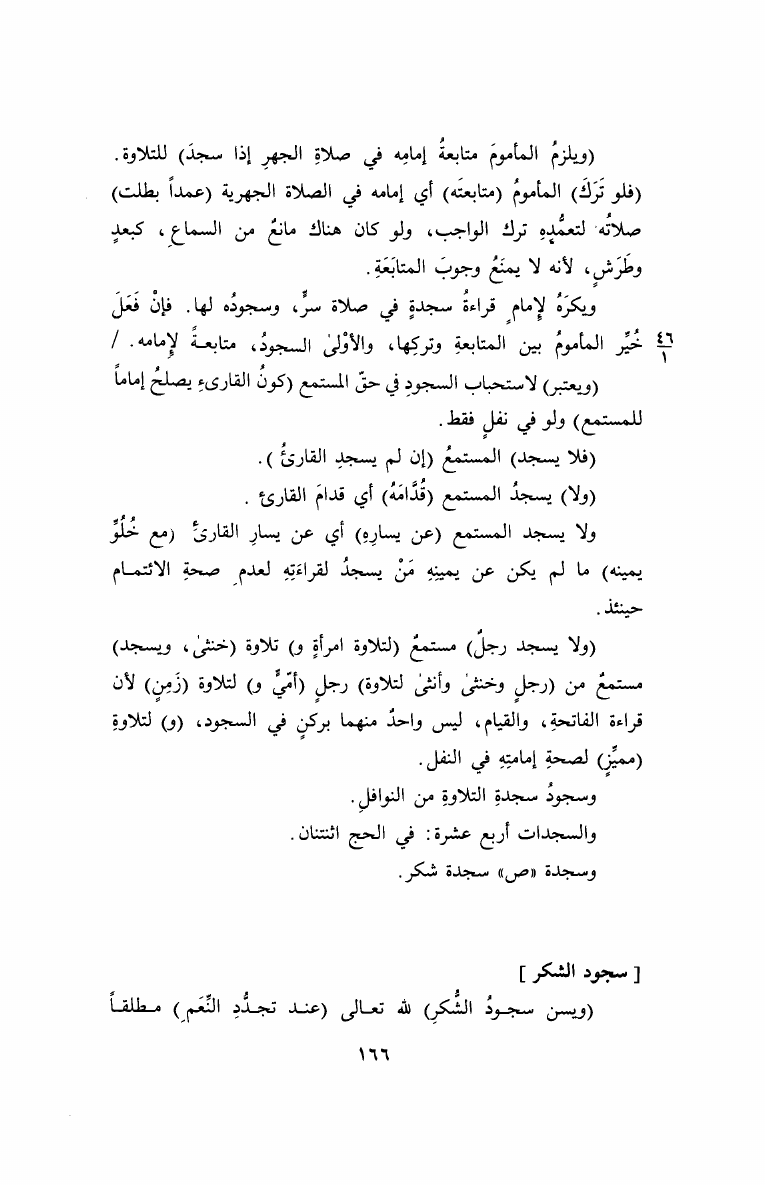 (ويلزمُ المأمومَ متابعةُ إمامِه في صلاةِ الجهرِ إذا سجدَ) للتلاوة.
(فلو تَرَكَ) المأمومُ (متابعتَه) أي إمامه في الصلاة الجهرية (عمداً بطلت)
صلاتُه لتعمُّدِهِ ترك الواجب، ولو كان هناك مانعٌ من السماعِ، كبعدٍ
وطَرَشٍ، لأنه لا يمنَعُ وجوبَ المتابَعَةِ.
ويكرَهُ لإمامٍ قراءةُ سجدةٍ في صلاة سرٍّ، وسجودُه لها. فإنْ فَعَلَ
خُيِّر المأمومُ بين المتابعةِ وتركِها، والأوْلىٰ السجودُ، متابعـةً لإمامه. / ٤٦/١
(ويعتبر) لاستحباب السجودِ في حقّ المستمع (كونُ القارىءِ يصلحُ إماماً
للمستمع) ولو في نفلٍ فقط.
(فلا يسجد) المستمعُ (إن لم يسجدِ القارئُ).
(ولا) يسجدُ المستمع (قُدَّامَهُ) أي قدامَ القارئ.
ولا يسجد المستمع (عن يسارِهِ) أي عن يسارِ القارئ (مع خُلُوِّ
يمينه) ما لم يكن عن يمينِهِ مَنْ يسجدُ لقراءَتِهِ لعدمِ صحةِ الائتمـام
حينئذ.
(ولا يسجد رجلٌ) مستمعٌ (لتلاوة امرأةٍ و) تلاوة (خنثىٰ، ويسجد)
مستمعٌ من (رجلٍ وخنثىٰ وأنثىٰ لتلاوة) رجلٍ (أمّيٍّ و) لتلاوة (زَمِنٍ) لأن
قراءة الفاتحةِ، والقيام، ليس واحدٌ منهما بركنٍ في السجود، (و) لتلاوةِ
(مميِّزٍ) لصحةِ إمامتِهِ في النفل.
وسجودُ سجدةِ التلاوةِ من النوافلِ.
والسجدات أربع عشرة: في الحج اثنتنان.
وسجدة «ص» سجدة شكر.
[ سجود الشكر ]
(ويسن سجـودُ الشُّكرِ) لله تعـالى (عنـد تجـدُّدِ النِّعَمِ) مـطلقـاً
١٦٦